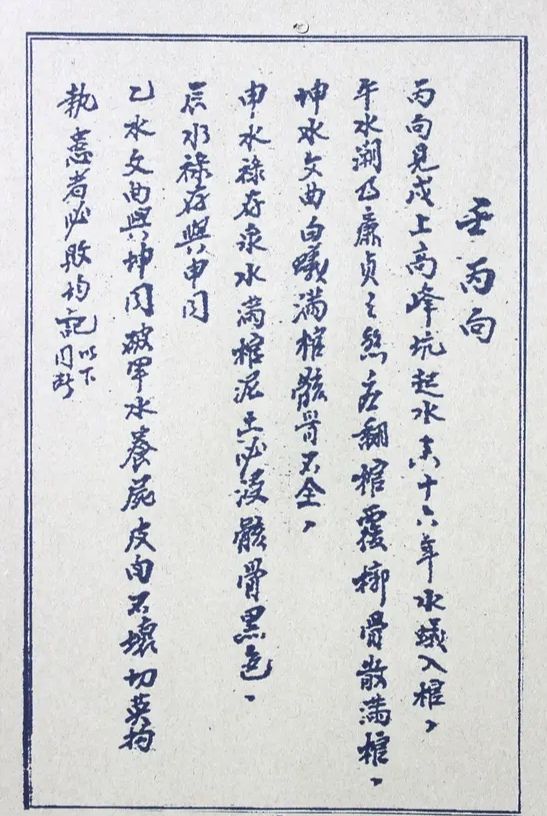 壬丙向
丙向見戌上高峰坑起水去十六年水蟻入棺，
午水溯乃廉貞之煞主翻棺覆槨骨散滿棺，
坤水文曲白蟻滿棺骸骨不全，
申水祿存录水滿棺泥土必浸骸骨黑色，
辰水祿存與申同
乙水文曲與坤同破军水養屍皮肉不壞切莫拘
執意者必敗均記以下同断